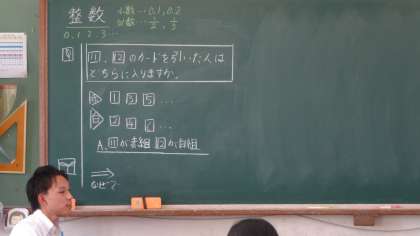 整数 小数…0.1, 0.2
分数…1/2, 1/3
0, 1, 2, 3…
11、12のカードを引いた人は
どちらに入りますか。
赤 1 3 5 …
白 2 4 6 …
A. 11が赤組 12が白組
なぜ?